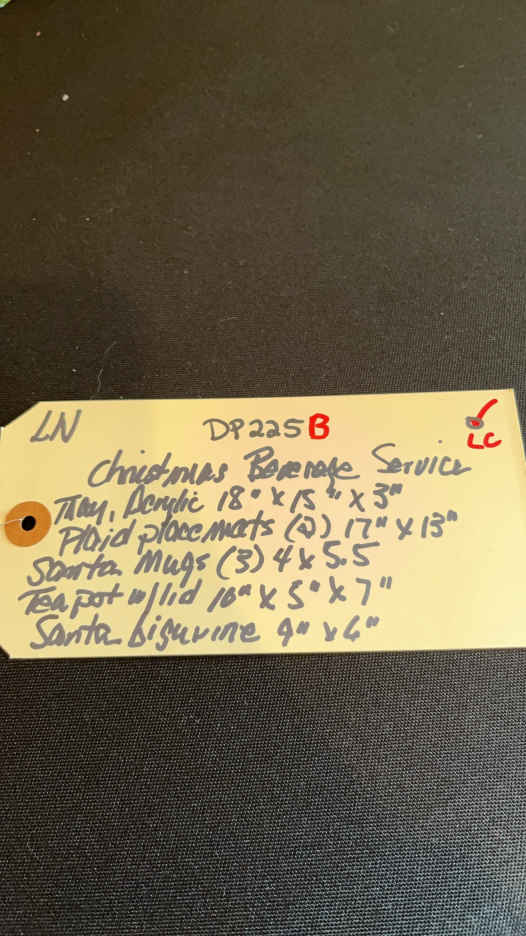 LN DP225B
LC
Christmas Beverage Service
Tray, Acrylic 18" x 15" x 3"
Plaid placemats (2) 17" x 13"
Santa Mugs (3) 4 x 5.5
Teapot w/lid 10" x 5" x 7"
Santa figurine 9" x 6"